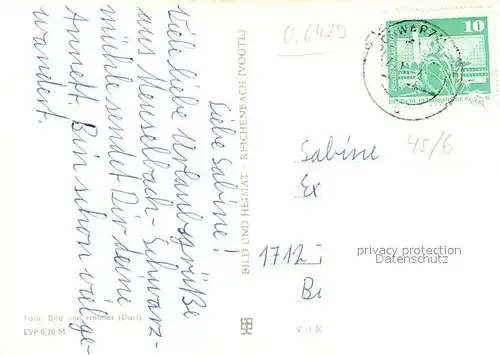 Liebe Sabine!
Viele liebe Urlaubsgrüße
aus Meuselbach-Schwarz-
mühle sendet Dir deine
Annett. Bin schon viel ge-
wandert.
Foto: Bild und Heimat (Darr)
EVP 0,20 M
BILD UND HEIMAT · REICHENBACH (VOGTL)
0,6429
SCHWARZM
10
DEUTSCHE DEMOKRATISCHE
45/6
Sabine
Ex
1712
privacy protection
Datenschutz